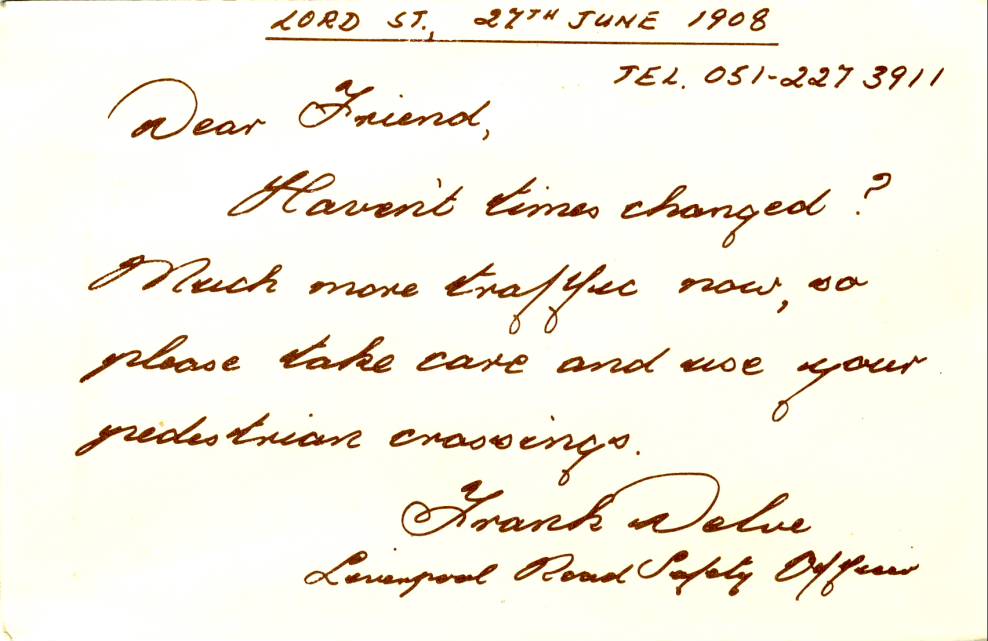 LORD ST., 27TH JUNE 1908
TEL. 051-227 3911
Dear Friend,
Haven't times changed?
Much more traffic now, so
please take care and use your
pedestrian crossings.
Frank Delve
Liverpool Road Safety Officer